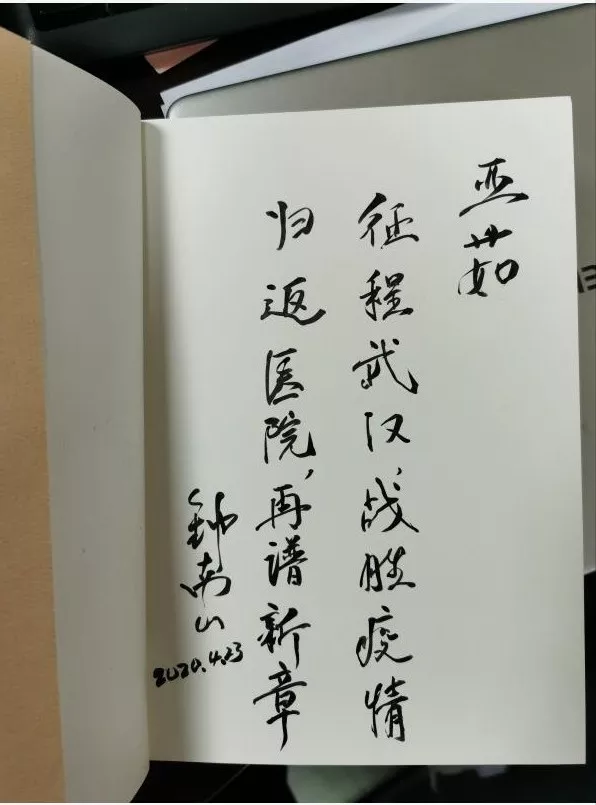 亚茹
征程武汉,战胜疫情
归返医院,再谱新章
钟南山
2020.4.23